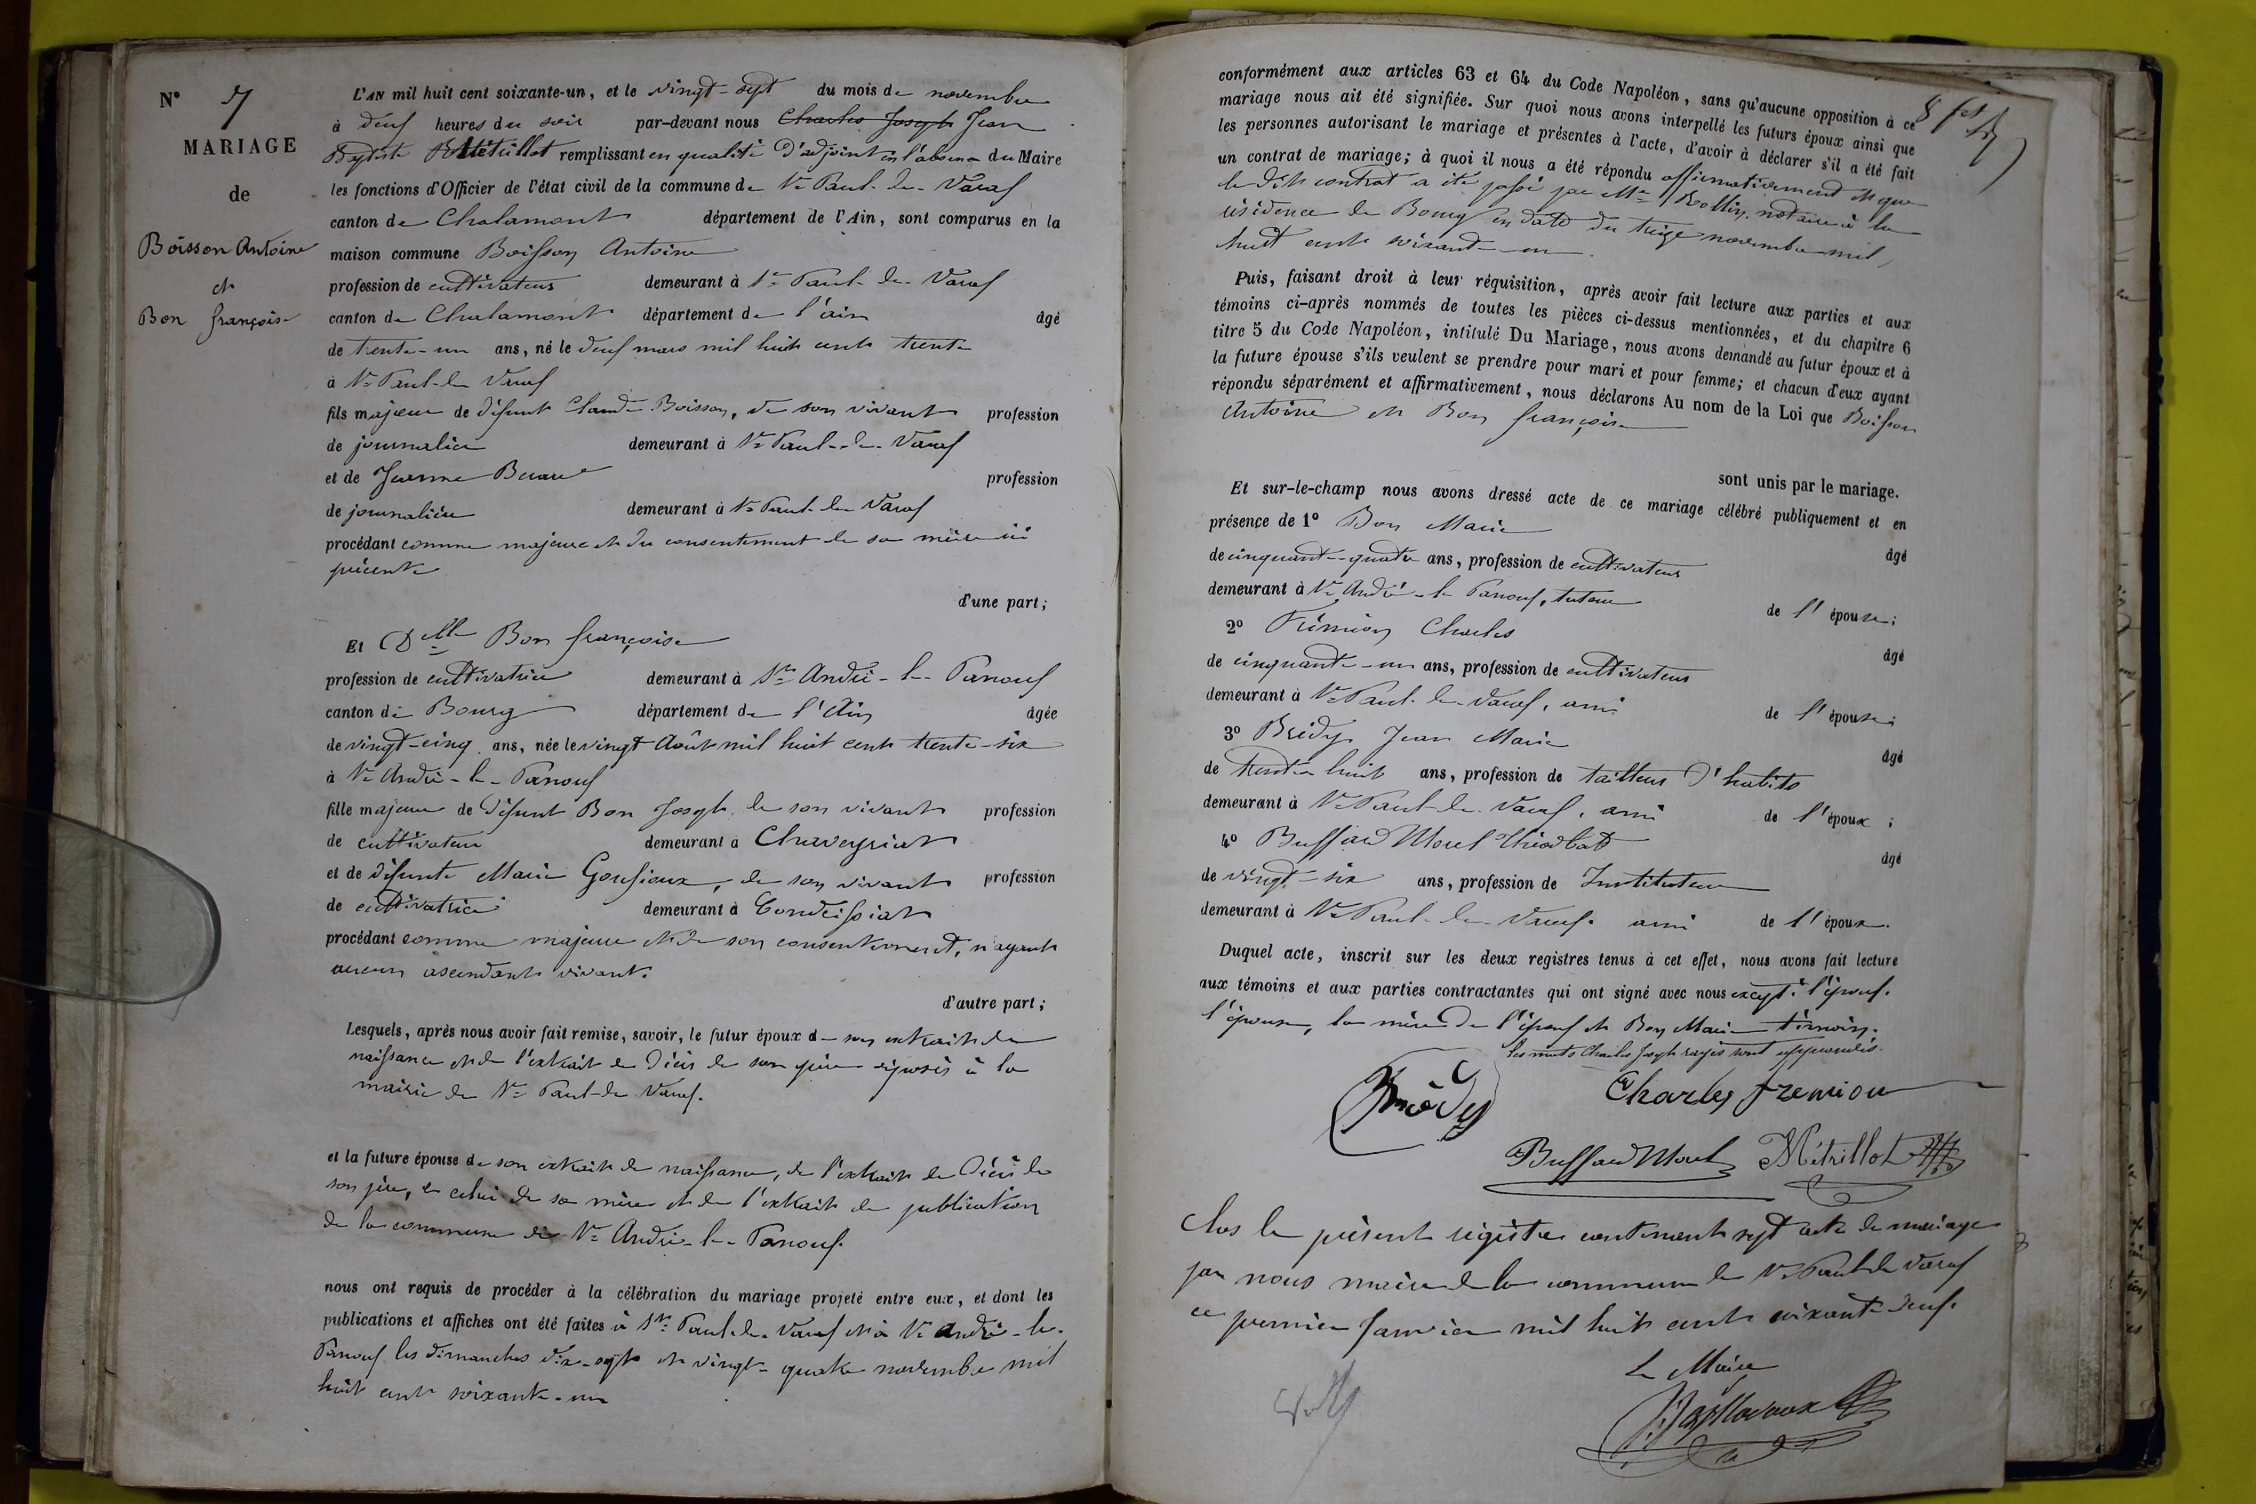 N° 7
MARIAGE
de
Boisson Antoine
et
Bon françoise
L'AN mil huit cent soixante-un, et le vingt-sept du mois de novembre
à deux heures du soir par-devant nous Charles Joseph Jean
Baptiste Métrillot remplissant en qualité d'adjoint en l'absence du Maire
les fonctions d'Officier de l'état civil de la commune de St Paul-de-Varax
canton de Chalamont département de l'Ain, sont comparus en la
maison commune Boisson Antoine
profession de cultivateur demeurant à St Paul-de-Varax
canton de Chalamont département de l'ain âgé
de trente-un ans, né le deux mars mil huit cent trente
à St Paul-de-Varax
fils majeur de défunt Claude Boisson, de son vivant profession
de journalier demeurant à St Paul-de-Varax
et de Jeanne profession
de journalière demeurant à St Paul-de-Varax
procédant comme majeur et du consentement de sa mère ici
présente
d'une part;
Et Dlle Bon françoise
profession de cultivatrice demeurant à St André-le-Panoux
canton de Bourg département de l'Ain âgée
de vingt-cinq ans, née le vingt Août mil huit cent trente-six
à St André-le-Panoux
fille majeure de défunt Bon Joseph, de son vivant profession
de cultivateur demeurant à Chaveyriat
et de défunte Marie Goussioux, de son vivant profession
de cultivatrice demeurant à Condeissiat
procédant comme majeure et de son consentement, n'ayant
aucun ascendant vivant.
d'autre part;
Lesquels, après nous avoir fait remise, savoir, le futur époux de son extrait de
naissance et de l'extrait de décès de son père déposés à la
mairie de St Paul-de-Varax.
et la future épouse de son extrait de naissance, de l'extrait de décès de
son père, de celui de sa mère et de l'extrait de publication
de la commune de St André-le-Panoux.
nous ont requis de procéder à la célébration du mariage projeté entre eux, et dont les
publications et affiches ont été faites à St Paul-de-Varax et à St André-le-
Panoux les dimanches dix-sept et vingt-quatre novembre mil
huit cent soixante-un
conformément aux articles 63 et 64 du Code Napoléon, sans qu'aucune opposition à ce
mariage nous ait été signifiée. Sur quoi nous avons interpellé les futurs époux ainsi que
les personnes autorisant le mariage et présentes à l'acte, d'avoir à déclarer s'il a été fait
un contrat de mariage; à quoi il nous a été répondu affirmativement et que
le dit contrat a été passé par Me Rollin, notaire à la
résidence de Bourg en date du treize novembre mil
huit cent soixante-un.
Puis, faisant droit à leur réquisition, après avoir fait lecture aux parties et aux
témoins ci-après nommés de toutes les pièces ci-dessus mentionnées, et du chapitre 6
titre 5 du Code Napoléon, intitulé Du Mariage, nous avons demandé au futur époux et à
la future épouse s'ils veulent se prendre pour mari et pour femme; et chacun d'eux ayant
répondu séparément et affirmativement, nous déclarons Au nom de la Loi que Boisson
Antoine et Bon françoise
sont unis par le mariage.
Et sur-le-champ nous avons dressé acte de ce mariage célébré publiquement et en
présence de 1° Bon Marie âgé
de cinquante-quatre ans, profession de cultivateur
demeurant à St André-le-Panoux, tuteur de l'épouse;
2° Frémion Charles âgé
de cinquante-un ans, profession de cultivateur
demeurant à St Paul-de-Varax, ami de l'épouse;
3° Brédy Jean Marie âgé
de trente-huit ans, profession de tailleur d'habits
demeurant à St Paul-de-Varax, ami de l'époux;
4° Buffard Morel Théodbald âgé
de vingt-six ans, profession de Instituteur
demeurant à St Paul-de-Varax. ami de l'époux.
Duquel acte, inscrit sur les deux registres tenus à cet effet, nous avons fait lecture
aux témoins et aux parties contractantes qui ont signé avec nous excepté l'époux.
l'épouse, la mère de l'époux et Bon Marie témoin.
les mots Charles Joseph rayés sont approuvés.
Brédy
Charles fremion
Buffard Morel Métrillot
Clos le présent registre contenant sept acte de mariage
par nous maire de la commune de St Paul de Varax
ce premier Janvier mil huit cent soixante-deux.
Le Maire